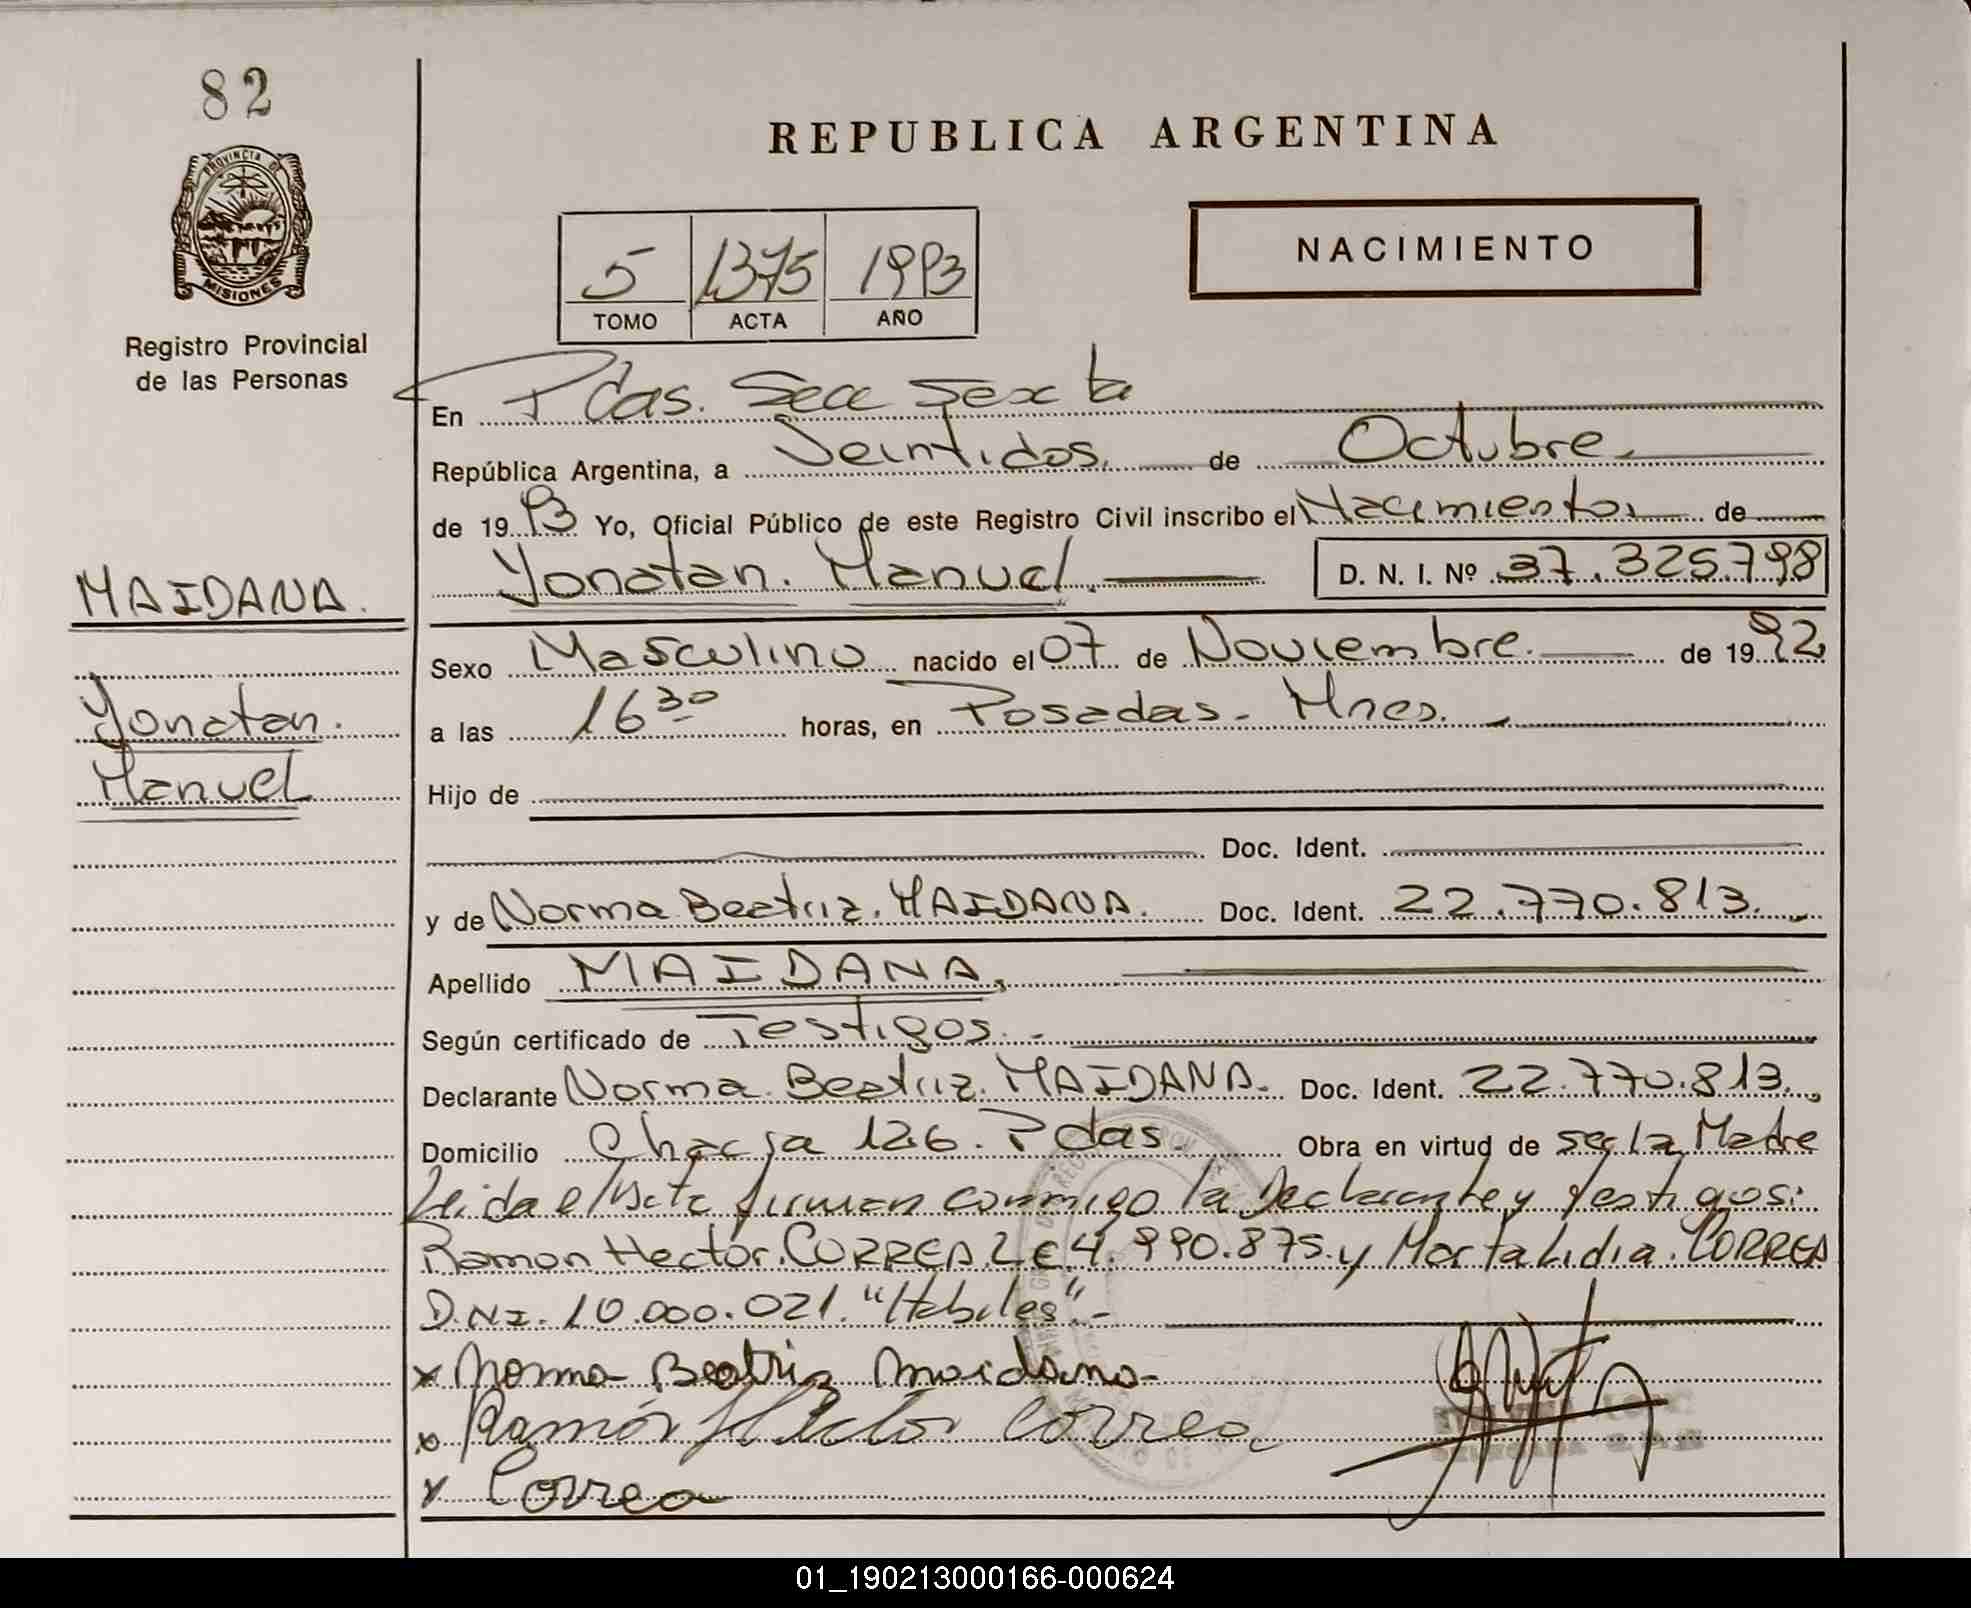 82
PROVINCIA DE
MISIONES
Registro Provincial
de las Personas
REPUBLICA ARGENTINA
NACIMIENTO
5 1375 1993
TOMO ACTA AÑO
En Pdas. Secc Sexta
República Argentina, a Veintidos. de Octubre.
de 1993 Yo, Oficial Público de este Registro Civil inscribo el Nacimiento de
Yonatan. Manuel. D. N. I. Nº 37.325.798
MAIDANA.
Yonatan.
Manuel
Sexo Masculino nacido el 07 de Noviembre. de 1992
a las 16 30 horas, en Posadas - Mnes.
Hijo de
Doc. Ident.
y de Norma Beatriz. MAIDANA. Doc. Ident. 22.770.813.
Apellido MAIDANA.
Según certificado de Testigos. -
Declarante Norma. Beatriz. MAIDANA. Doc. Ident. 22.770.813.
Domicilio Chacra 126. Pdas. Obra en virtud de ser la Madre
Leida el Acta firman conmigo la Declarante y Testigos:
Ramon Hector. CORREA L E 4.990.875. y Marta Lidia. CORREA
D.N.I. 10.000.021. "Habiles" -
x Norma Beatriz Maidana
x Ramón Hector Correa
x Correa
01_190213000166-000624